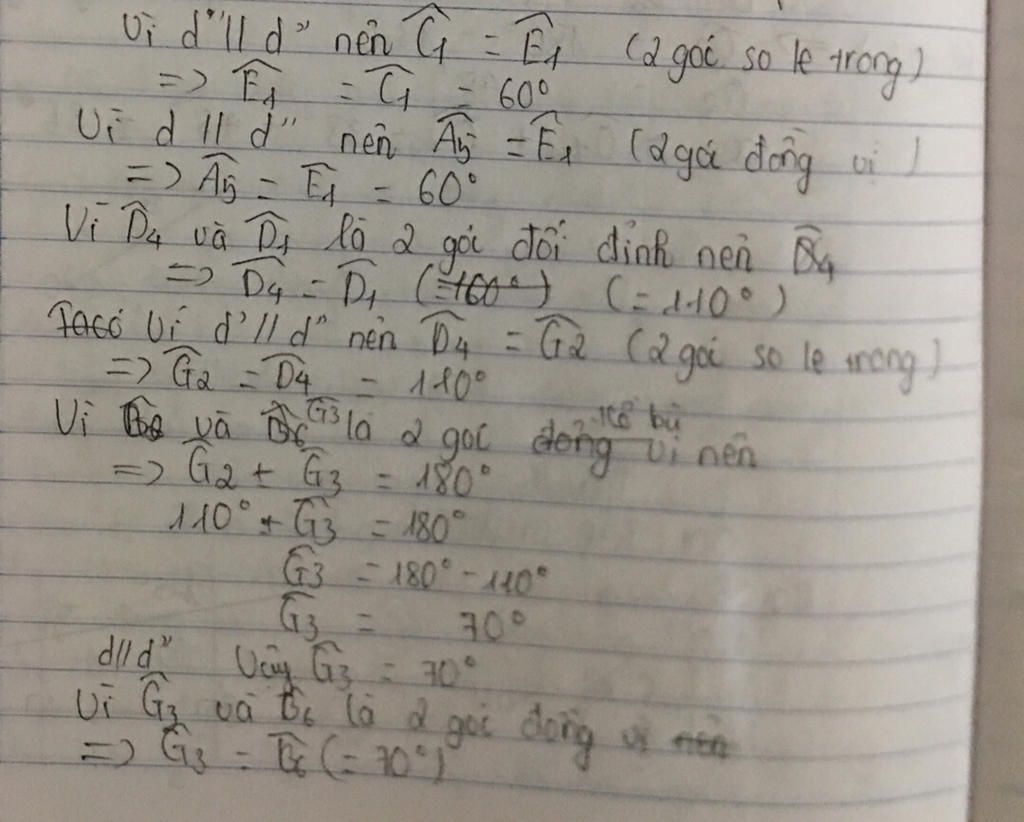 Vì d'//d'' nên Ĉ1 = Ê1 (2 goć so le trong)
=> Ê1 = Ĉ1 = 60°
Vì d // d'' nên Â5 = Ê1 (2 góc đồng vị)
=> Â5 = Ê1 = 60°
Vì D̂4 và D̂1 là 2 góc đối đỉnh nên D̂4
=> D̂4 = D̂1 (=100°) (=110°)
Ta có Vì d'//d'' nên D̂4 = Ĝ2 (2 góc so le trong)
=> Ĝ2 = D̂4 = 110°
Vì và Ĝ3 là 2 góc đồng vị kề bù nên
=> Ĝ2 + Ĝ3 = 180°
110° + Ĝ3 = 180°
Ĝ3 = 180° - 110°
Ĝ3 = 70°
d//d'' Vậy Ĝ3 = 70°
Vì Ĝ3 và B̂6 là 2 góc đồng vị nên
=> Ĝ3 = B̂6 (= 70°)